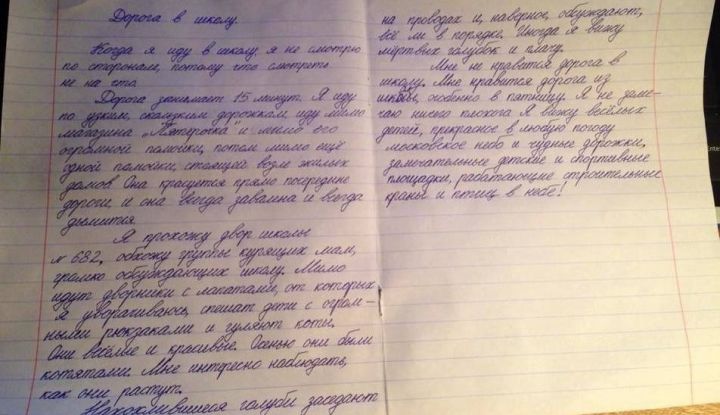 Дорога в школу.
Когда я иду в школу, я не смотрю
по сторонам, потому что смотреть
не на что.
Дорога занимает 15 минут. Я иду
по узким, скользким дорожкам, иду мимо
магазина "Пятерочка" и мимо его
огромной помойки, потом мимо ещё
одной помойки, стоящей возле жилых
домов. Она красуется прямо посередине
дороги и она всегда завалена и всегда
дымится.
Я прохожу двор школы
№ 682, обхожу группы курящих мам,
громко обсуждающих школу. Мимо
идут дворники с лопатами, от которых
я уворачиваюсь, спешат дети с огром-
ными рюкзаками и гуляют коты.
Они весёлые и красивые. Осенью они были
котятами. Мне интересно наблюдать,
как они растут.
Нахохлившиеся голуби заседают
на проводах и, наверное, обсуждают,
всё ли в порядке. Иногда я вижу
мёртвых голубок и плачу.
Мне не нравится дорога в
школу. Мне нравится дорога из
школы, особенно в пятницу. Я не заме-
чаю ничего плохого. Я вижу весёлых
детей, прекрасное в любую погоду
московское небо и чудные дорожки,
замечательные детские и спортивные
площадки, работающие строительные
краны и птиц в небе!